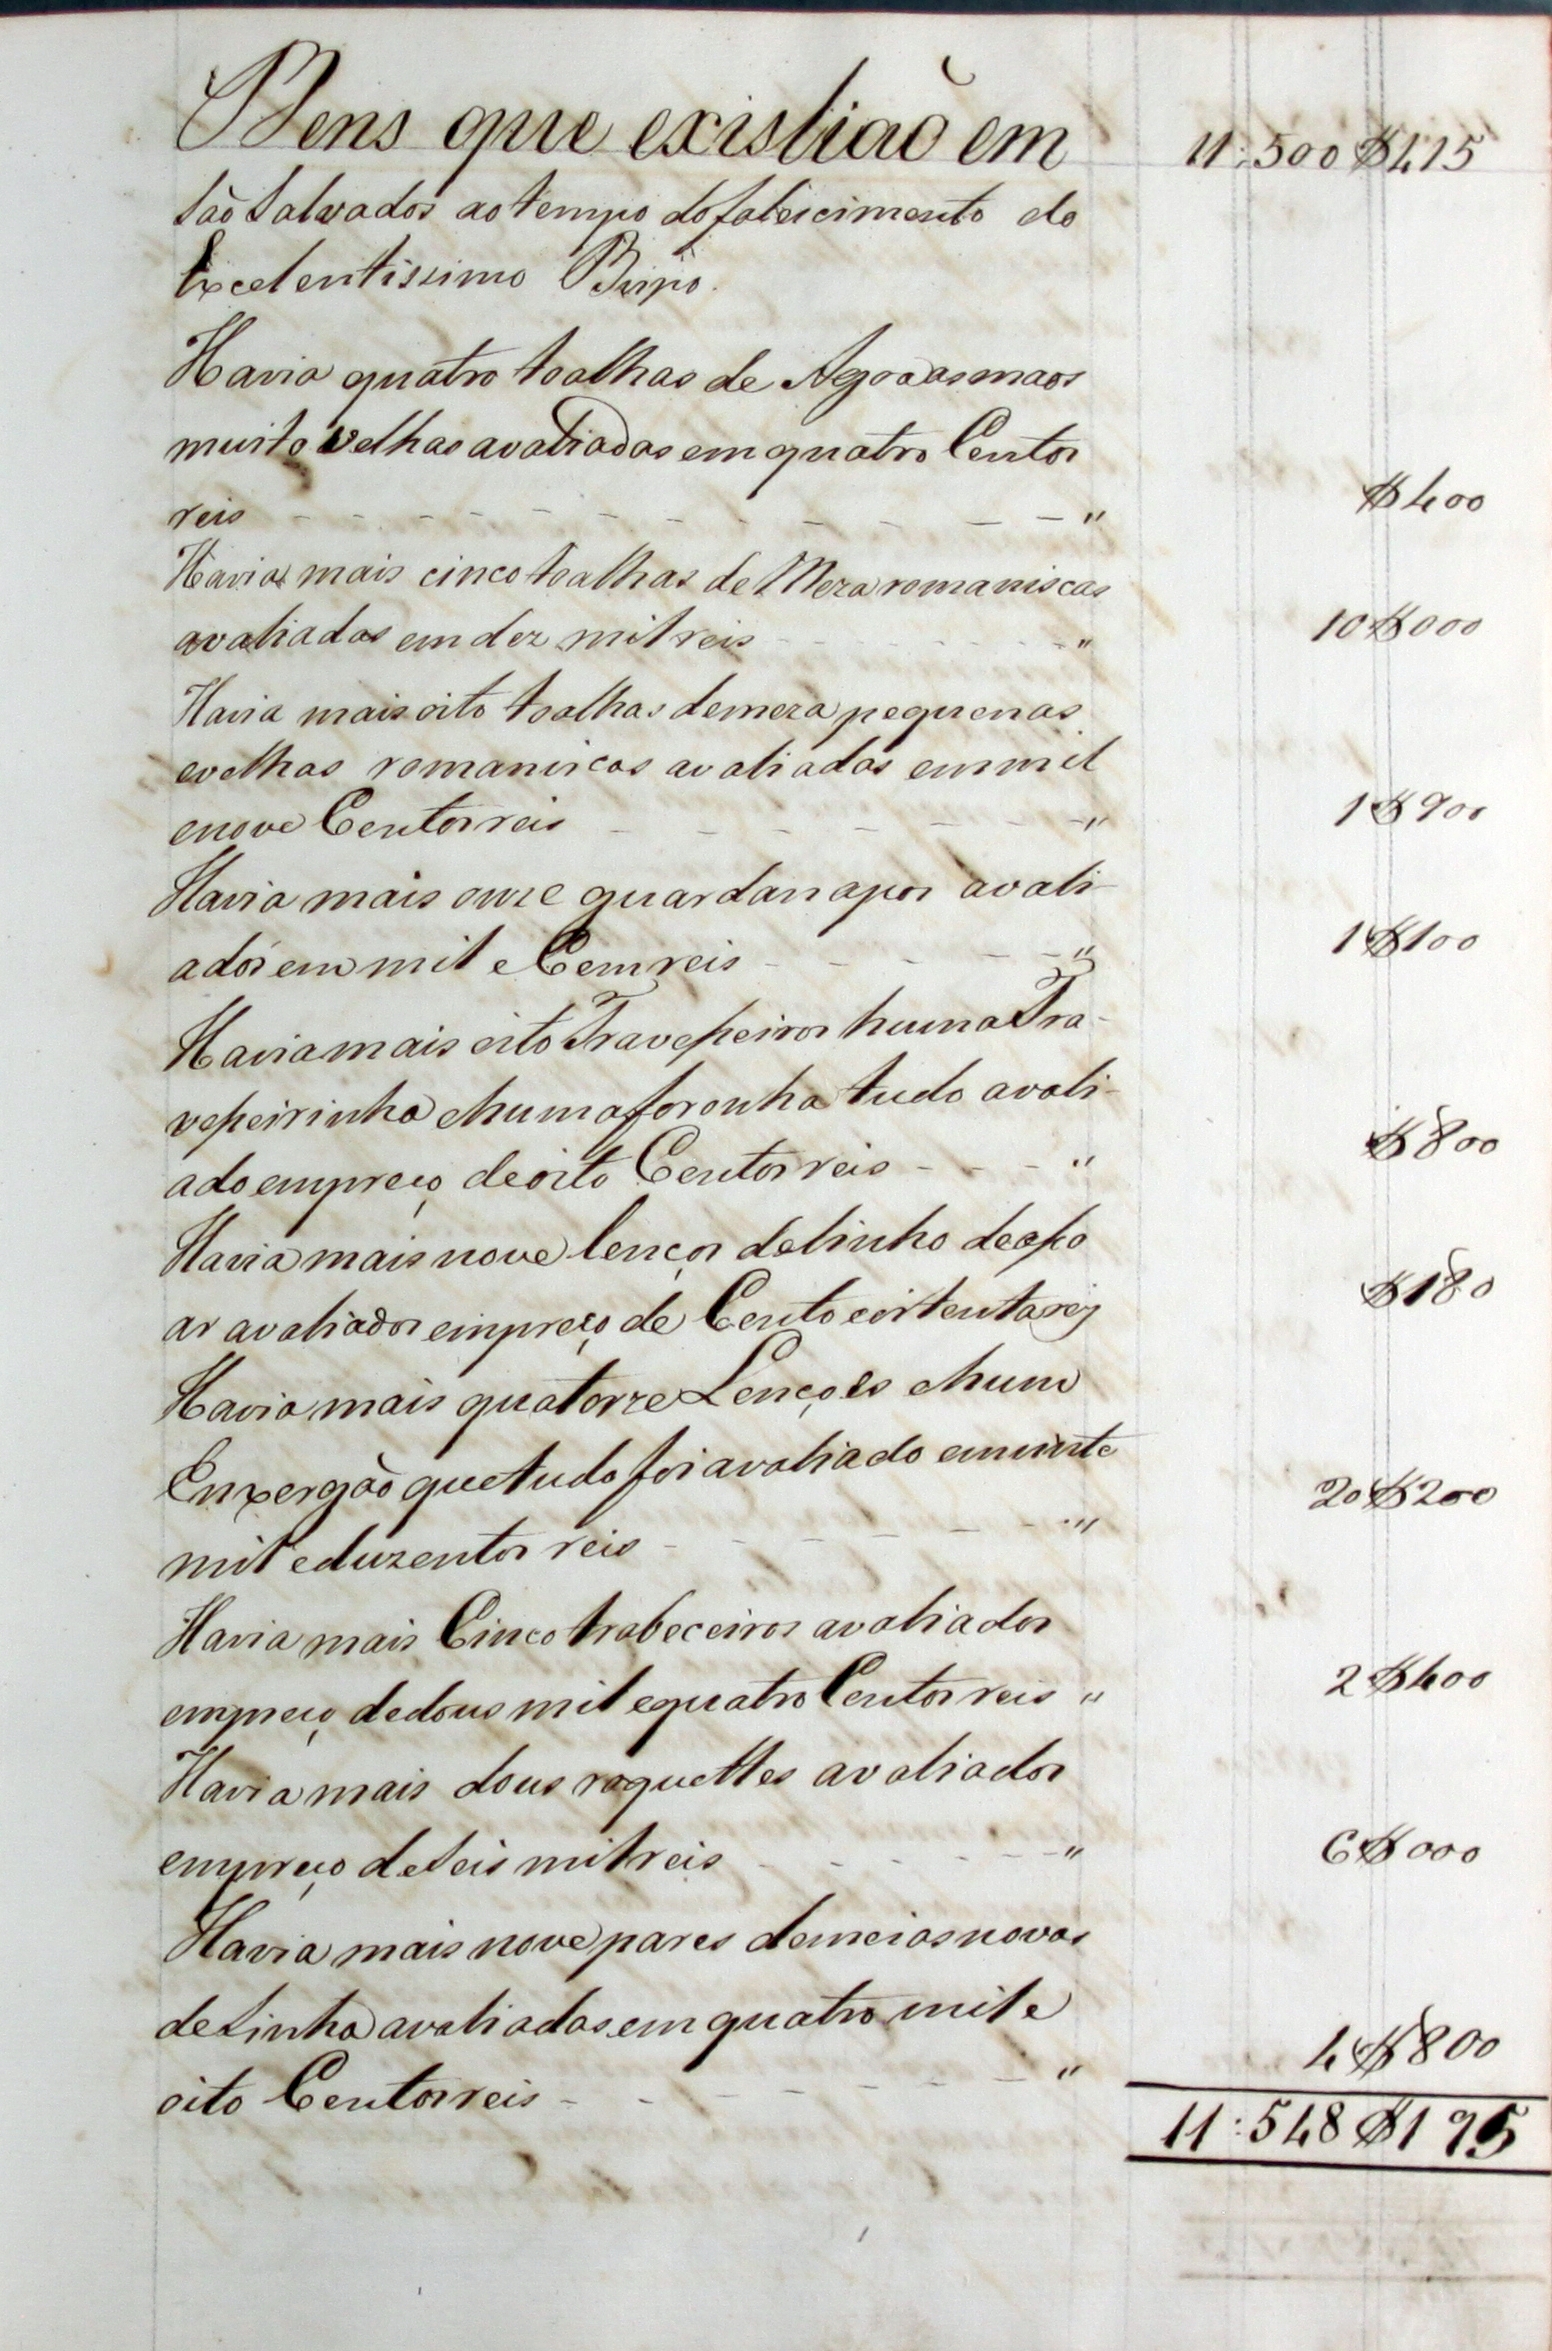 Bens que existiaõ em 11:500$415
Saõ Salvador ao tempo do falescimento do
Excelentissimo Bispo.
Havia quatro toalhas de Agoa as maos
muito velhas avaliadas em quatro Centos
reis - - - - - - - - - - - - " $400
Havia mais cinco toalhas de Meza romaniscas
avaliadas em dez mil reis - - - - - - " 10$000
Havia mais oito toalhas de meza pequenas
e velhas romaniscas avaliadas em mil
e nove Centos reis - - - - - - - " 1$900
Havia mais onze guardanapos avali-
ados em mil e Cem reis - - - - - " 1$100
Havia mais oito Traveseiros huma Tra-
veseirinha e huma foronha tudo avali-
ado em preço de oito Centos reis - - - " $800
Havia mais nove lenços de linho de aso
ar avaliados em preço de Cento e oitenta reis $180
Havia mais quatorze Lençoes e hum
Enxergaõ que tudo foi avaliado em vinte
mil e duzentos reis - - - - - - " 20$200
Havia mais Cinco trabeceiros avaliados
em preço de dous mil e quatro Centos reis " 2$400
Havia mais dous roquettes avaliados
em preço de Seis mil reis - - - - - " 6$000
Havia mais nove pares de meias novas
de Linha avaliadas em quatro mil e
oito Centos reis - - - - - - - " 4$800
11:548$195